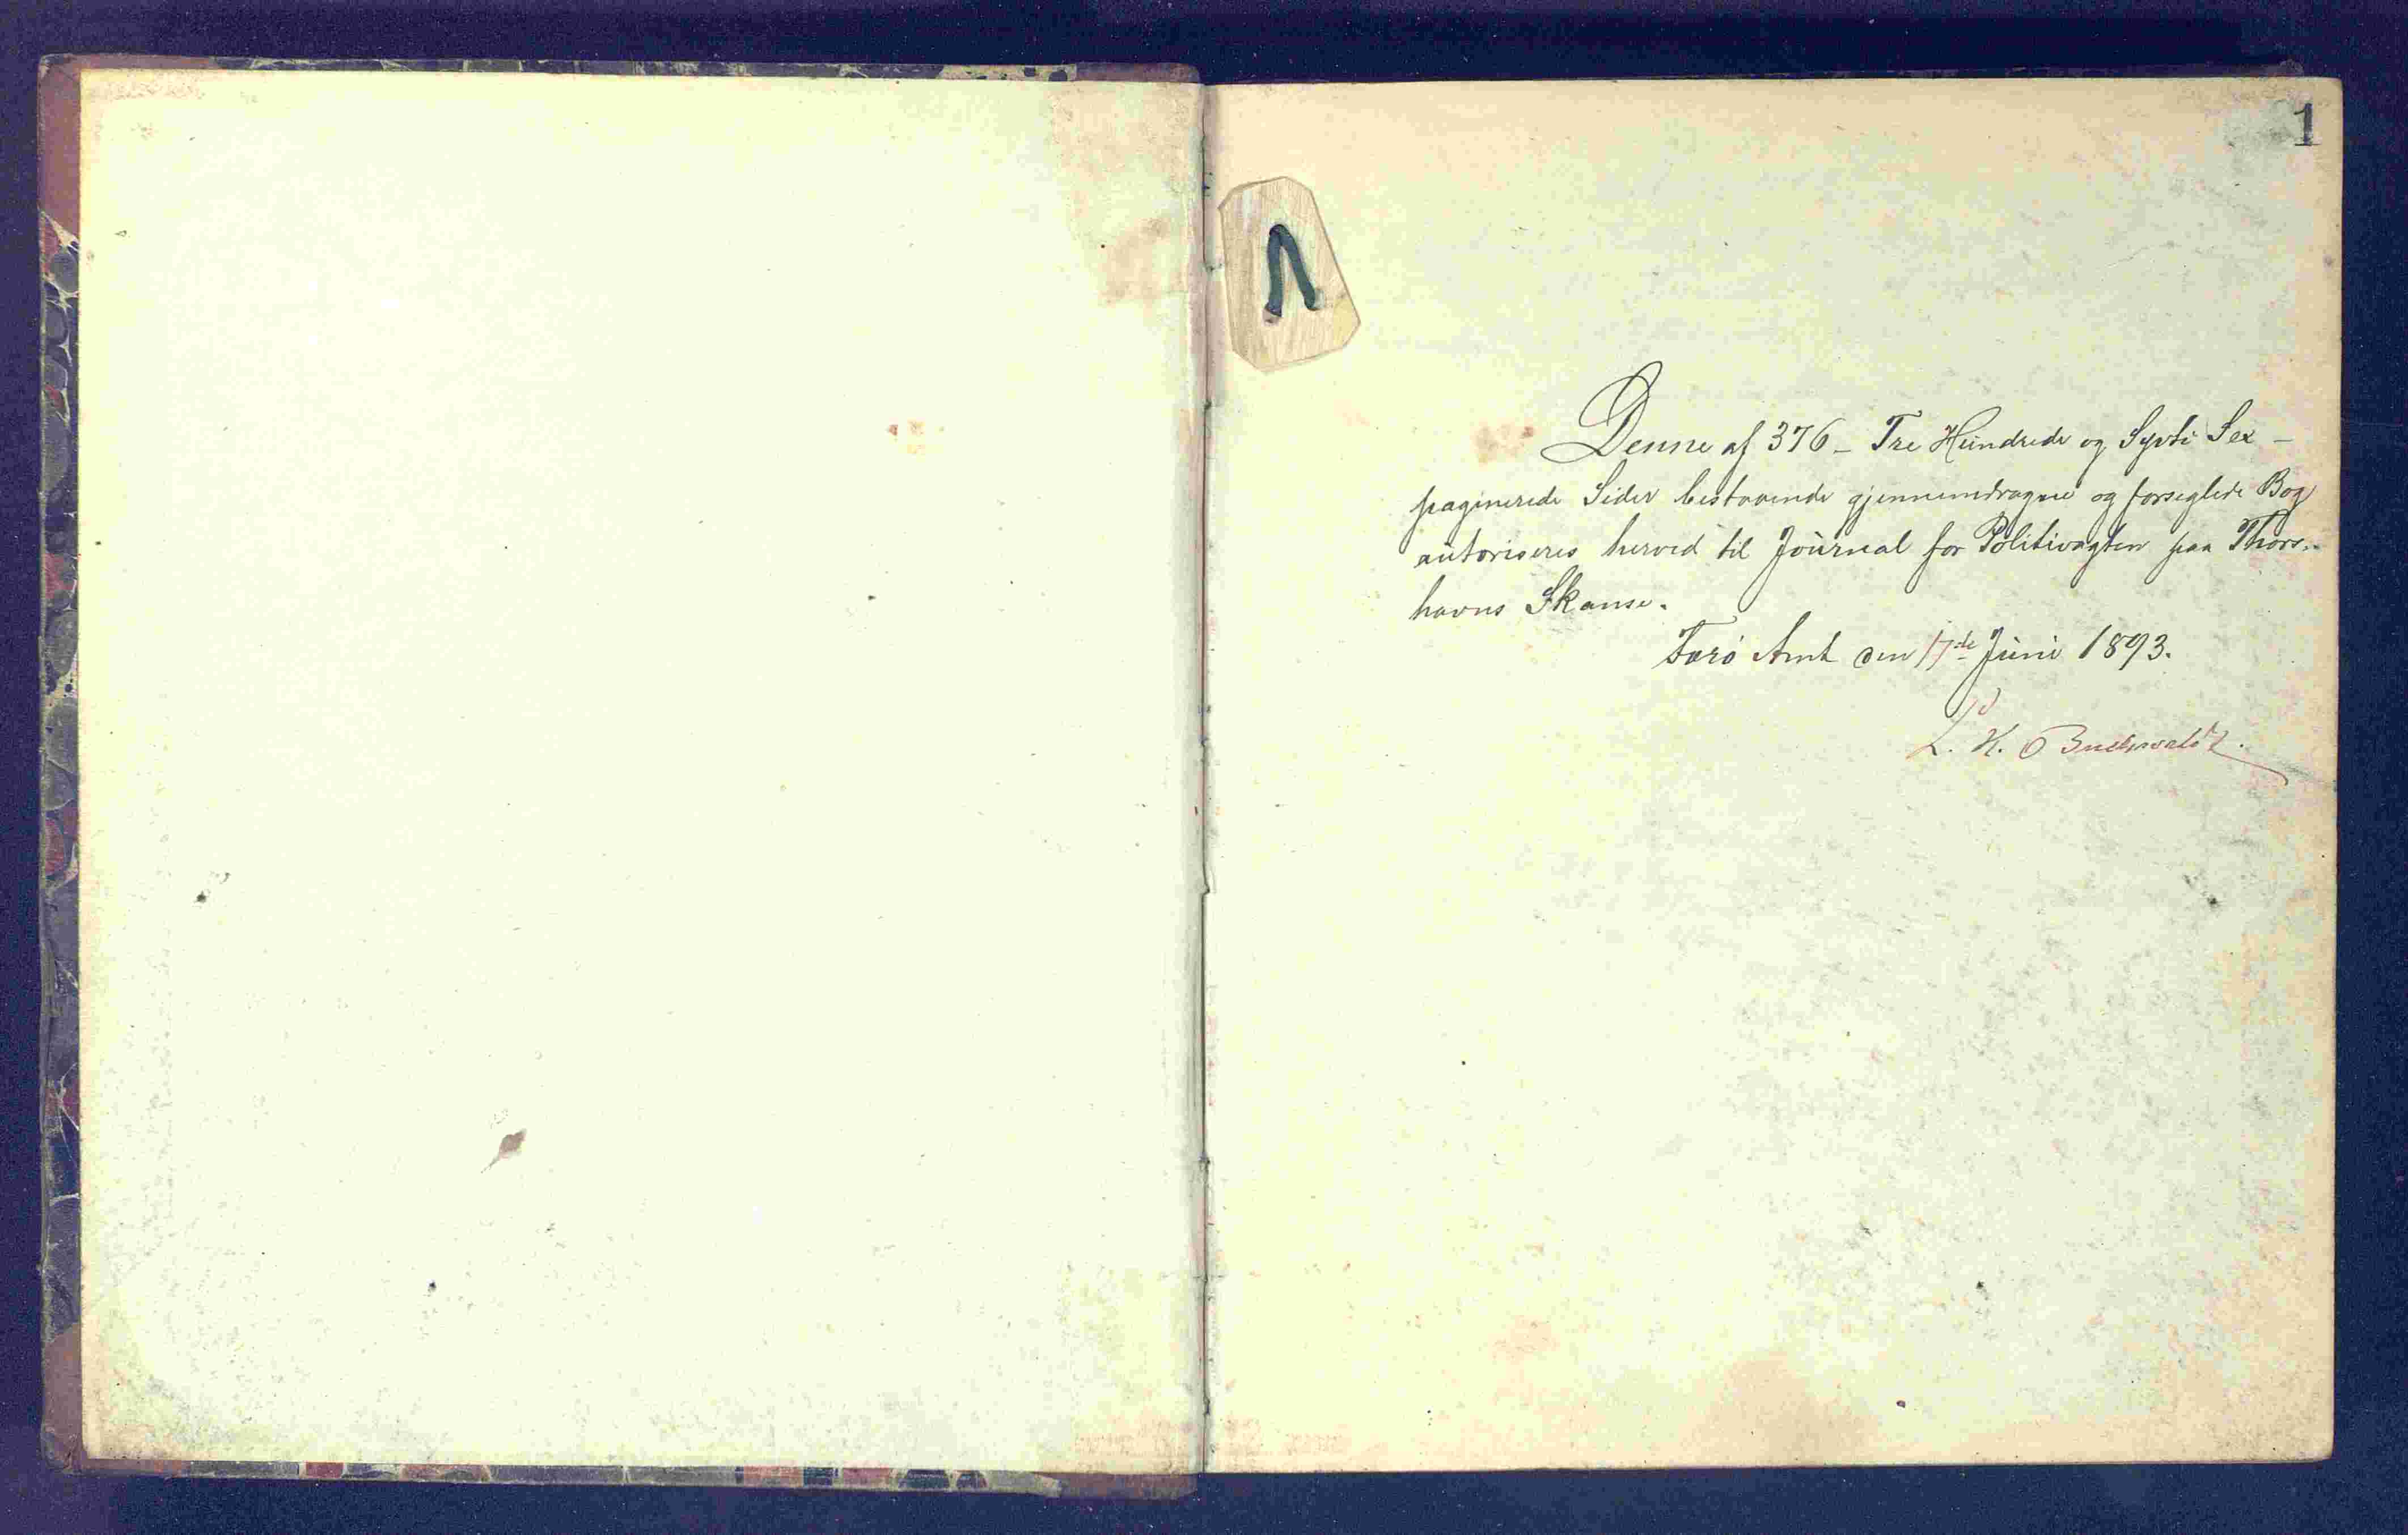 1
Denne af 376 - Tre Hundrede og Syvti Sex -
paginerede Sider bestaaende gjennemdragne og forseglede Bog
autoriseres herved til Journal for Politivagten paa Thors-
havns Skanse.
Færø Amt den 17de Juni 1893.
L. H. Buchwaldt.